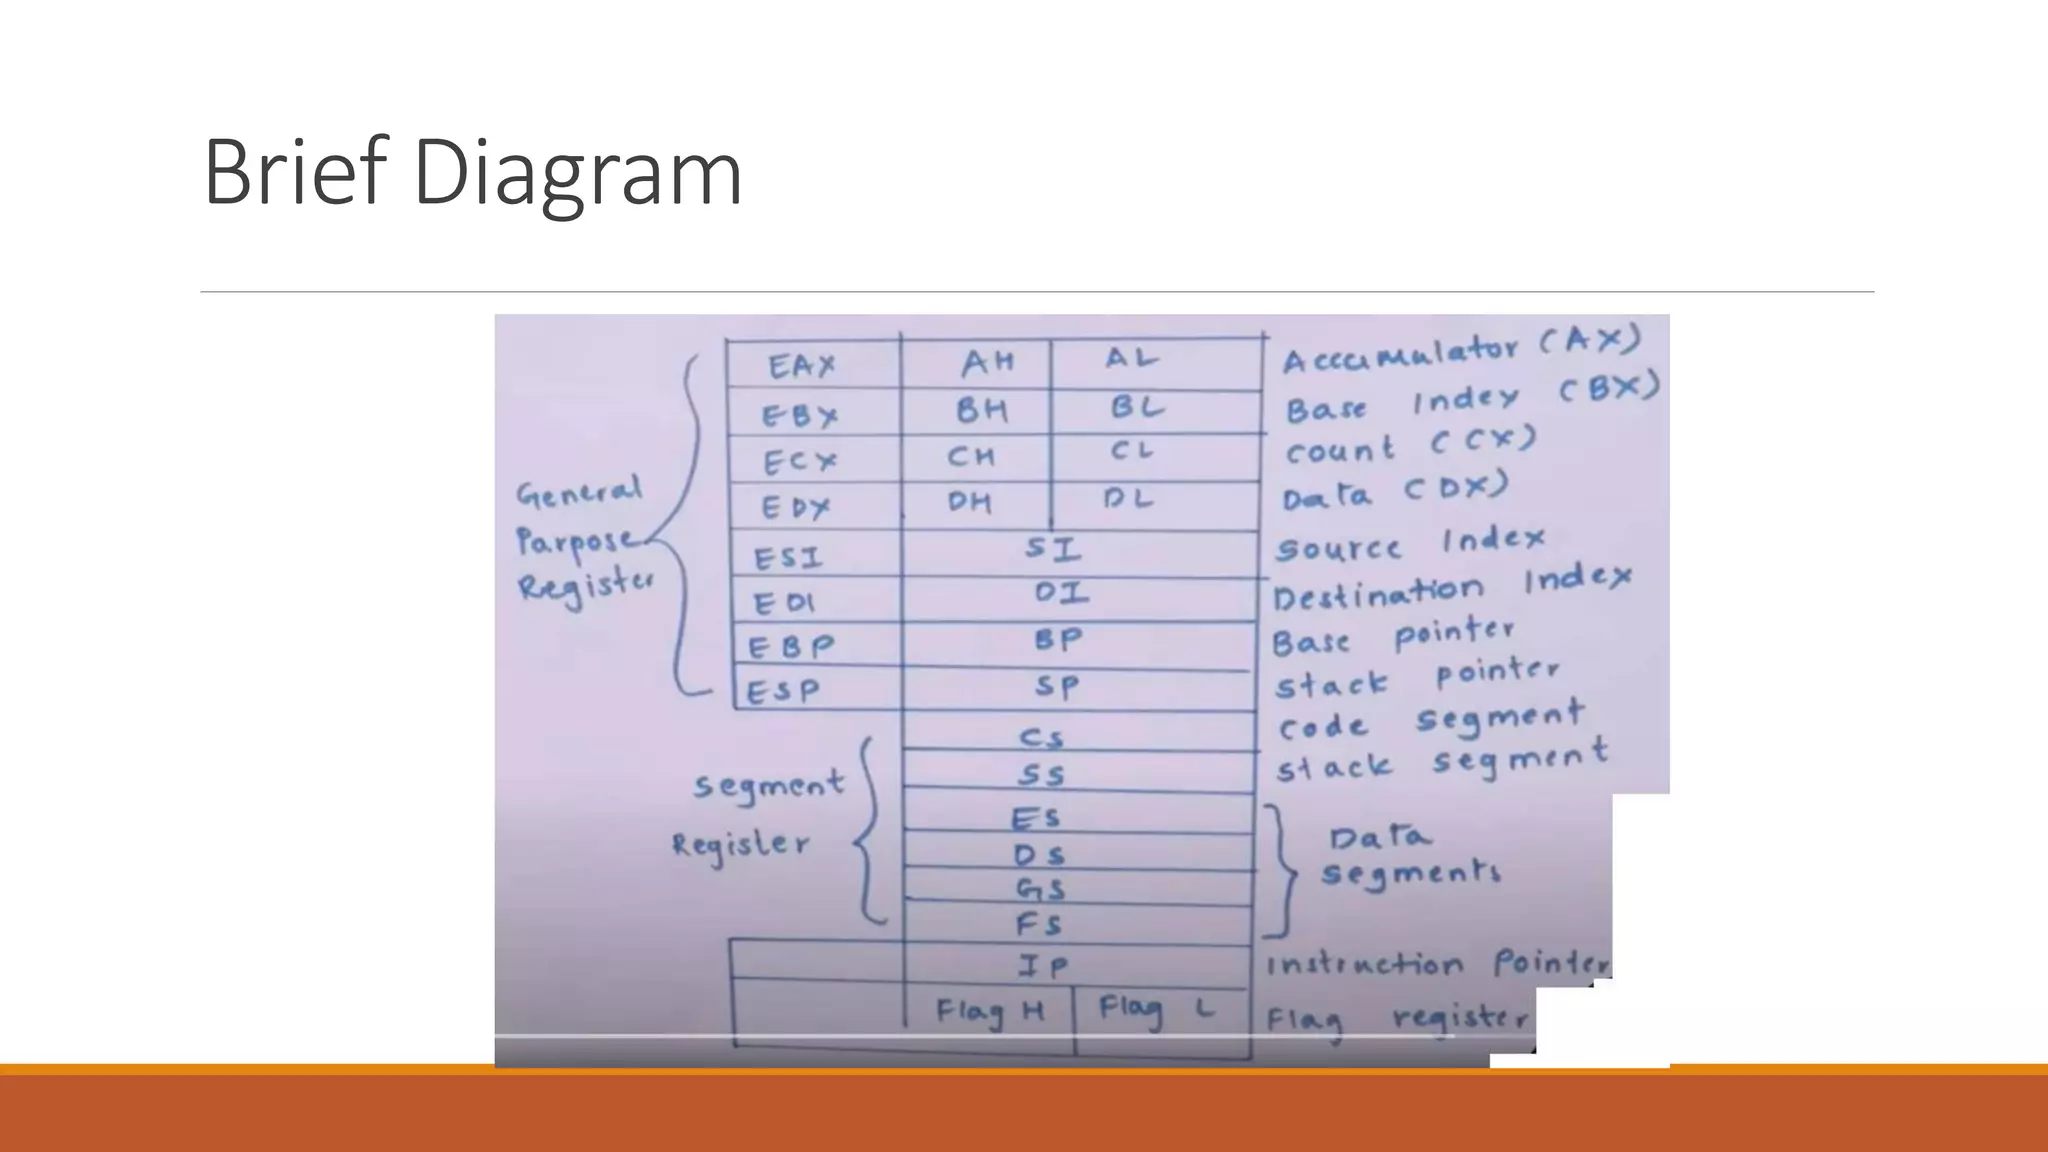 Brief Diagram
EAX AH AL Accumulator (AX)
EBX BH BL Base Index (BX)
ECX CH CL count (CX)
EDX DH DL Data (DX)
General
Parpose
Register
ESI SI Source Index
EDI DI Destination Index
EBP BP Base pointer
ESP SP Stack pointer
CS code segment
SS stack segment
Segment
Register
ES
DS
GS
FS
Data
segments
IP Instruction Pointer
Flag H Flag L Flag register